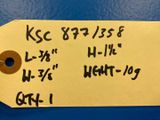 KSC 877/358
L-3/8" H-1½"
W-3/8" WEHT-10g
QTY-1